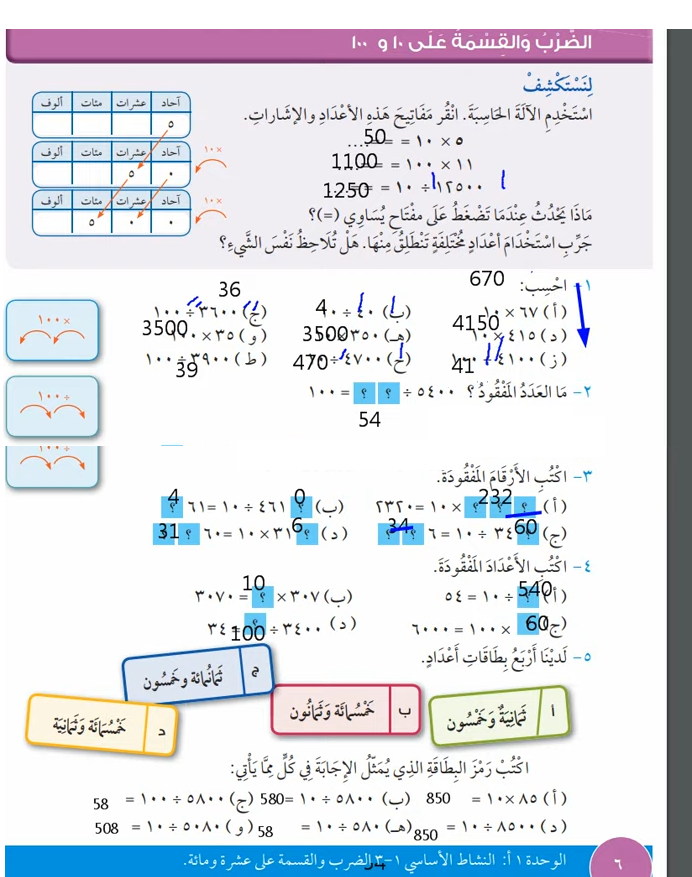 الضَّرْبُ وَالقِسْمَةُ عَلَى ١٠ و ١٠٠
لِنَسْتَكْشِفْ
اسْتَخْدِمِ الآلَةَ الحَاسِبَةَ. انْقُر مَفَاتِيحَ هَذِهِ الأَعْدَادِ والإشاراتِ.
آحاد عشرات مئات ألوف
٥
٥ × ١٠ = = 50
آحاد عشرات مئات ألوف
× ١٠
٠ ٥
١١ × ١٠٠ = = 1100
١٢٥٠٠ ÷ ١٠ = = 1250
آحاد عشرات مئات ألوف
× ١٠
٠ ٠ ٥
مَاذَا يَحْدُثُ عِنْدَمَا تَضْغَطُ عَلَى مِفْتَاحِ يُسَاوِي (=)؟
جَرِّبِ اسْتَخْدَامَ أَعْدَادٍ مُخْتَلِفَةٍ تَنْطَلِقُ مِنْهَا. هَلْ تُلَاحِظُ نَفْسَ الشَّيْءِ؟
١- احْسِبْ:
670 36
(أ) ٦٧ × ١٠ (ب) ٤٠ ÷ ١٠ 4 (ج) ٣٦٠٠ ÷ ١٠٠
× ١٠٠
(د) ٤١٥ × ١٠ 4150 (هـ) ٣٥٠ × 3500 (و) ٣٥ × ١٠٠ 3500
(ز) ٤١٠٠ 41 (ح) ٤٧٠٠ ÷ 470 (ط) ٣٩٠٠ ÷ ١٠٠ 39
٢- مَا العَدَدُ المَفْقُودُ؟ ٥٤٠٠ ÷ ؟ ؟ = ١٠٠
÷ ١٠٠
54
٣- اكْتُبِ الأَرْقَامَ المَفْقُودَةَ.
(أ) ؟ ؟ ؟ 232 × ١٠ = ٢٣٢٠ (ب) ؟ 0 ٤٦١ ÷ ١٠ = ٦١ ؟ 4
(ج) 60 ٣٤ ÷ ١٠ = ٦ ؟ ؟ 34 (د) ؟ 6 ٣١ × ١٠ = ٦٠ ؟ 31
٤- اكْتُبِ الأَعْدَادَ المَفْقُودَةَ.
(أ) ؟ 540 ÷ ١٠ = ٥٤ (ب) ٣٠٧ × ؟ 10 = ٣٠٧٠
(ج) 60 × ١٠٠ = ٦٠٠٠ (د) ٣٤٠٠ ÷ ؟ 100 = ٣٤
٥- لَدَيْنَا أَرْبَعُ بِطَاقَاتِ أَعْدَادٍ.
أ ثَمَانِيَةٌ وَخَمْسُون
ب خَمْسُمِائَة وَثَمَانُون
ج ثَمَانُمائة وخَمسُون
د خَمْسُمَائَة وَثَمَانِيَة
اكْتُبْ رَمْزَ البِطَاقَةِ الذِي يُمَثِّلُ الإِجَابَةَ فِي كُلٍّ مِمَّا يَأْتِي:
(أ) ٨٥ × ١٠ = 850 (ب) ٥٨٠٠ ÷ ١٠ = 580 (ج) ٥٨٠٠ ÷ ١٠٠ = 58
(د) ٨٥٠٠ ÷ ١٠ = 850 (هـ) ٥٨٠ ÷ ١٠ = 58 (و) ٥٠٨٠ ÷ ١٠ = 508
٦ الوحدة ١أ: النشاط الأساسي ١-٣ الضرب والقسمة على عشرة ومائة.